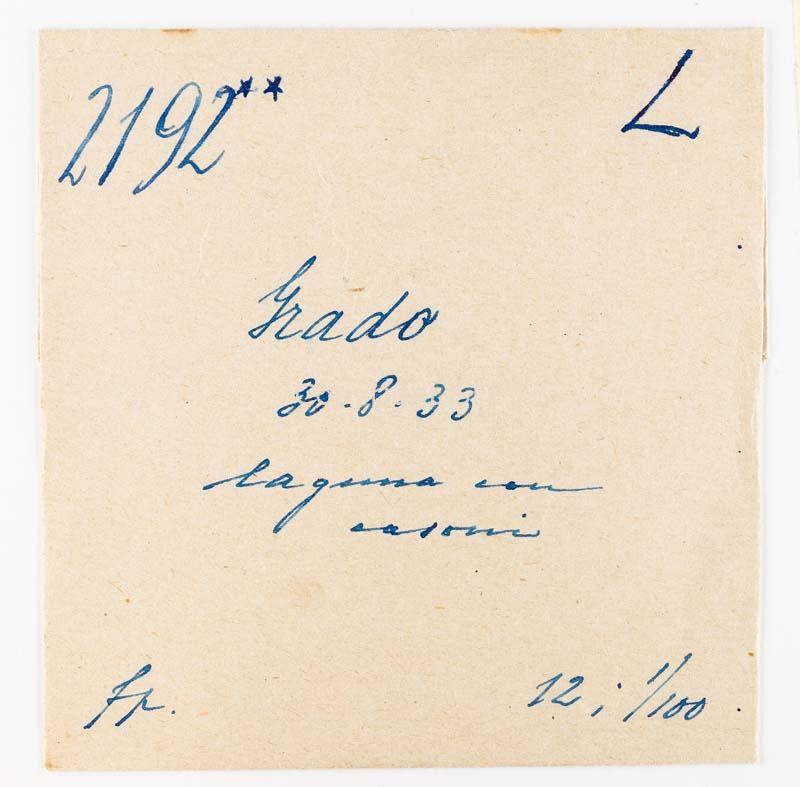 2192** L
Grado
30.8.33
laguna con
casoni
fp. 12; 1/100